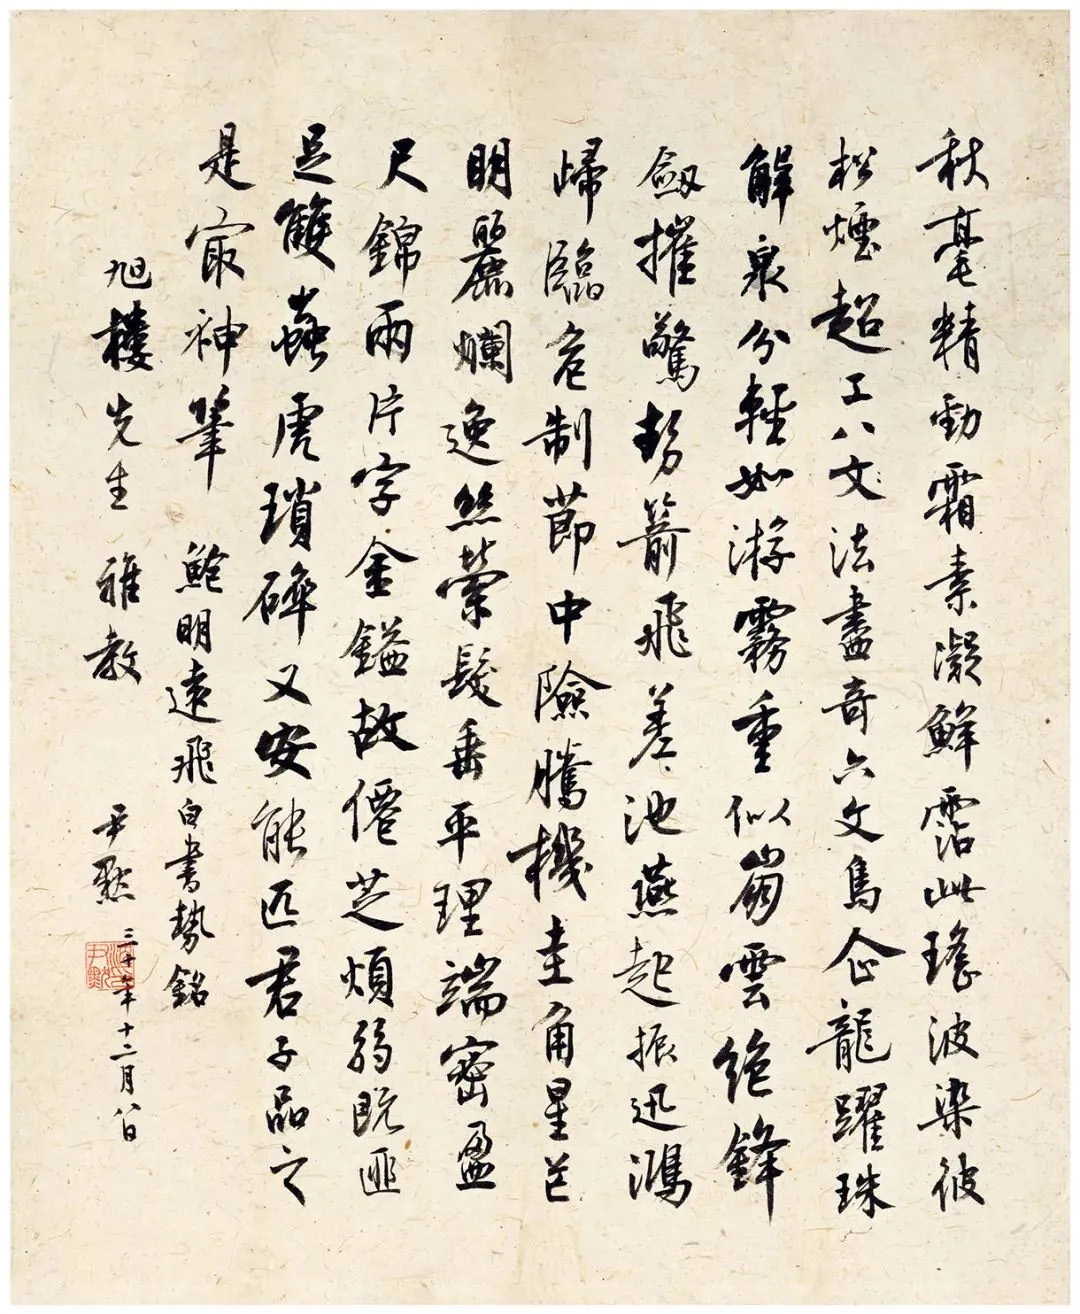 秋毫精勁霜素凝鮮霑此瑤波染彼
松煙超工八文法盡奇六文鳥企龍躍珠
解泉分輕如游霧重似崩雲絶鋒
劔摧驚勢箭飛差池燕起振迅鴻
歸臨危制節中險騰機圭角星芒
明麗爛逸絲縈髮垂平理端密盈
尺錦兩片字金鎰故僊芝煩弱既匪
足雙蟲虎瑣碎又安能匹君子品之
是寂神筆 鮑明遠飛白書勢銘
旭樓先生 雅教
尹默 三十年十二月八日